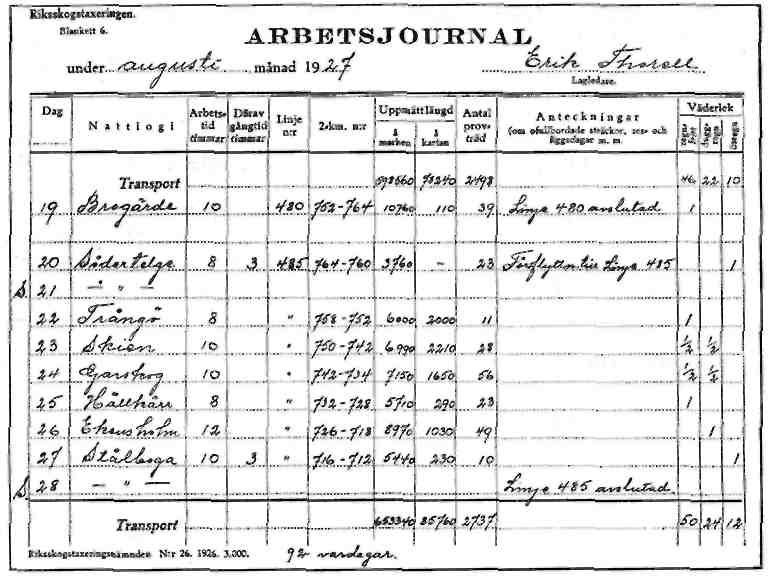 Riksskogstaxeringen.
Blankett 6.
ARBETSJOURNAL
under augusti månad 1927 Erik Thorell
Lagledare.
Dag Nattlogi Arbetstid timmar Därav gångtid timmar Linje n:r 2-km. n:r Uppmätt längd å marken å kartan Antal provträd Anteckningar (om ofullbordade sträckor, res- och liggdagar m. m. Väderlek
Transport 598560 75240 2498 46 22 10
19 Brogärde 10 480 752-764 10760 110 39 Linje 480 avslutad 1
20 Södertelge 8 3 485 764-760 3760 - 23 Förflyttn till Linje 485 1
S. 21 — " —
22 Trångö 8 " 758-752 6000 2000 11 1
23 Skien 10 " 750-742 6990 2210 28 ½ ½
24 Garskog 10 " 742-734 7150 1650 56 ½ ½
25 Hällkärr 8 " 732-728 5710 290 23 1
26 Ekensholm 12 " 726-718 8970 1030 49 1
27 Stålboga 10 3 " 716-712 5440 230 10 1
S. 28 — " — Linje 485 avslutad.
Transport 653340 85760 2737 50 24 12
Riksskogstaxeringsnämnden N:r 26. 1926. 3.000. 92 vardagar.